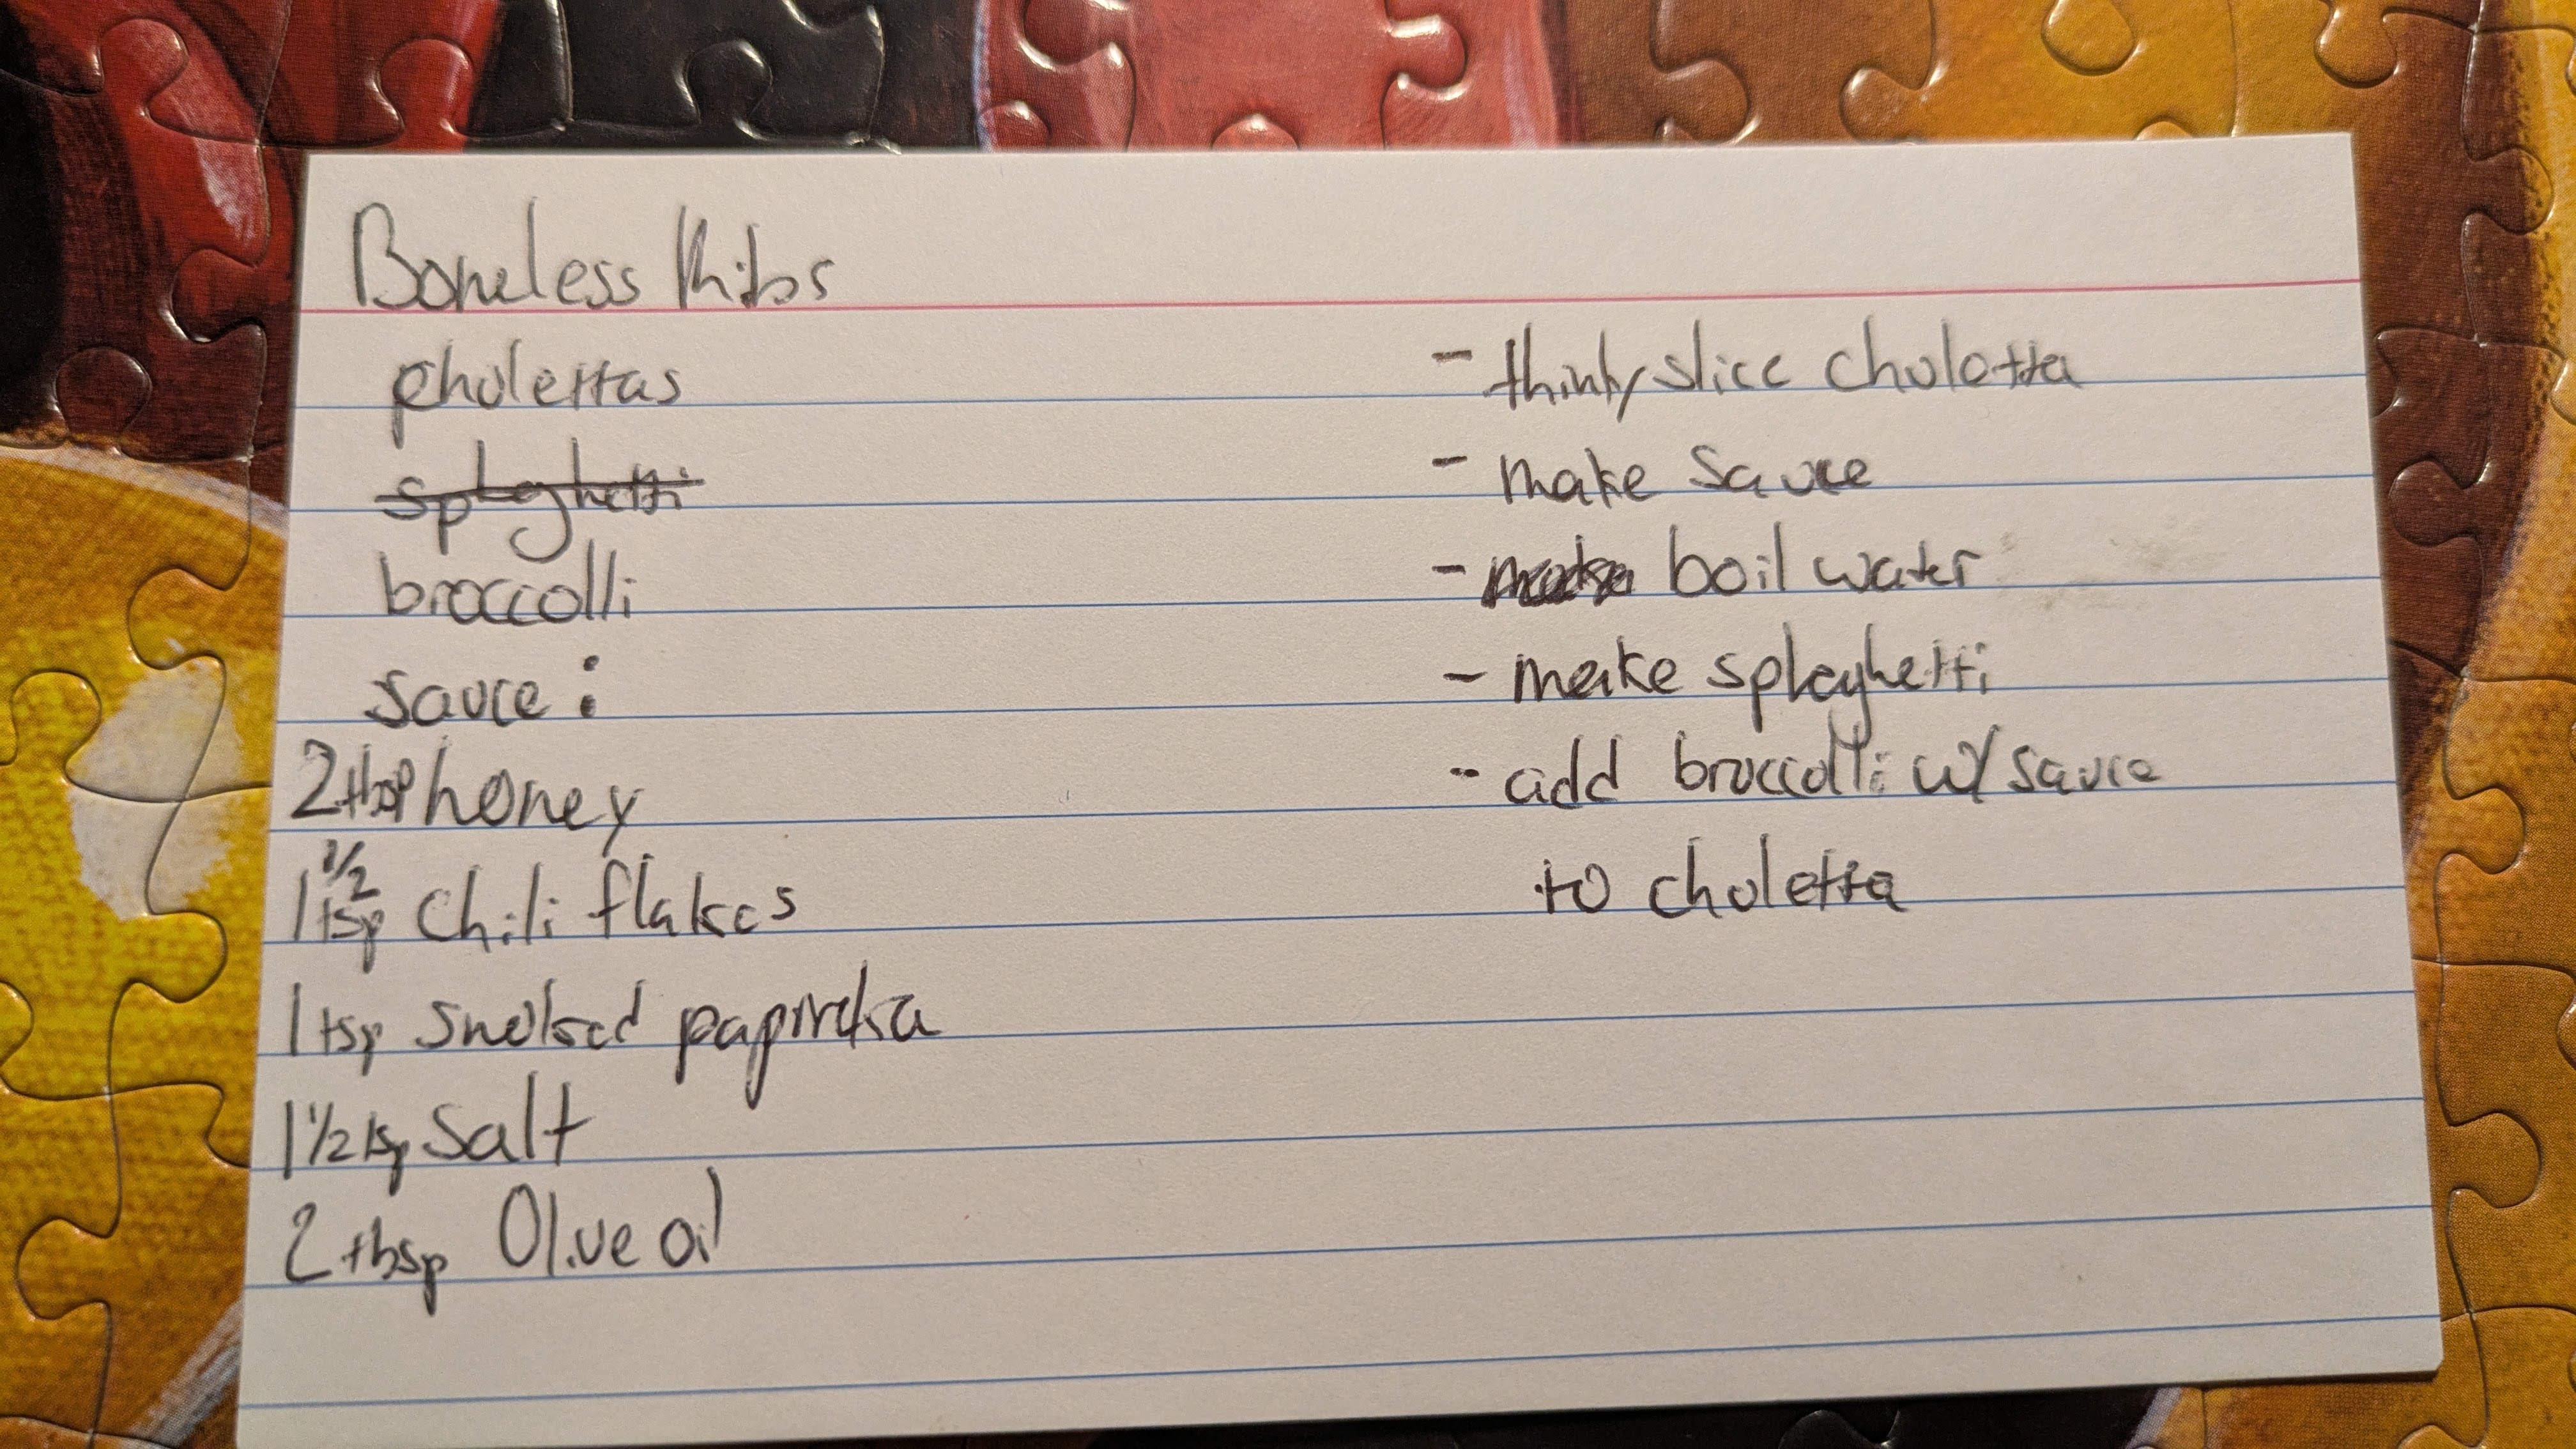 Boneless Ribs
pholettas
splaghetti
broccolli
sauce:
2 tbsp honey
1 1/2 tsp Chili flakes
1 tsp Smoked papirka
1 1/2 tsp Salt
2 tbsp Olive oil
- thinly slice choletta
- make sauce
- boil water
- make splaghetti
- add broccolli w/ sauce
to choletta